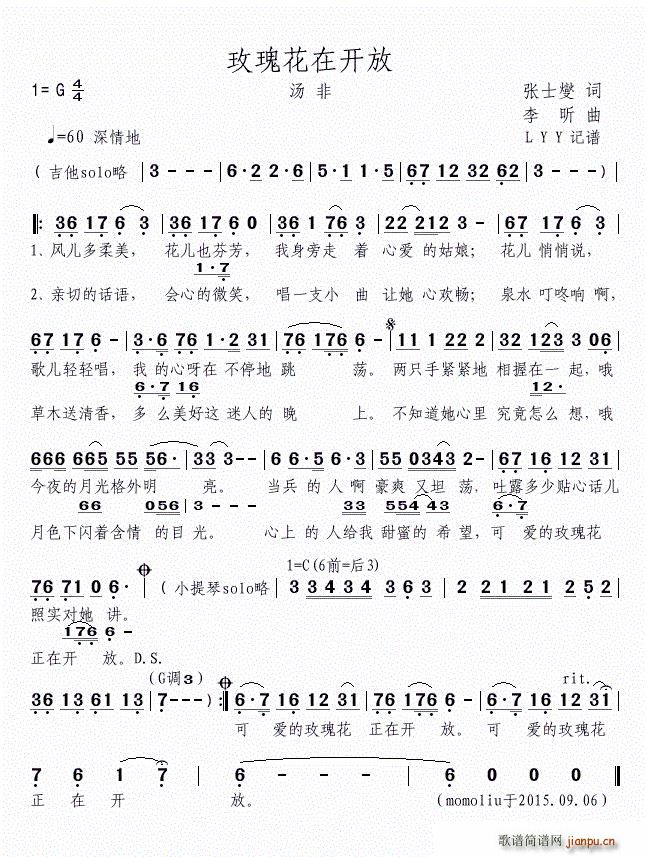 玫瑰花在开放
1=G 4/4 汤 非 张士燮 词
李 昕 曲
♩=60 深情地 LYY记谱
(吉他solo略 | 3 - - - | 6·2 2·6 | 5·1 1·5 | 67 12 32 62 | 3 - - - | )
‖: 36 17 6 3 | 36 17 6 0 | 36 1 76 3 | 22 212 3 - | 67 17 6 3 |
1、风儿多柔美, 花儿也芬芳, 我身旁走 着 心爱 的姑娘; 花儿 悄悄说,
1·7
2、亲切的话语, 会心的微笑, 唱一支小 曲 让她 心欢畅; 泉水 叮咚响 啊,
67 17 6 - | 3·6 76 1·2 31 | 76 176 6 - | 11 11 222 2 | 32 123 3 06 |
歌儿轻轻唱, 我 的心呀在 不停地 跳 荡。 两只手紧紧地 相握在 一 起,哦
6·7 16 12·
草木送清香, 多 么美好这 迷人的 晚 上。 不知道她心里 究竟怎么 想,哦
666 665 55 56· | 33 3 - - | 6 6·5 6·3 | 55 0343 2 - | 67 16 12 31 |
今夜的月光格外明 亮。 当兵 的 人 啊 豪爽 又坦 荡, 吐露多少贴心话儿
66 056 3 33 554 43 6·7
月色下闪着含情 的目 光。 心上 的 人给我 甜蜜的 希 望,可 爱的玫瑰花
1=C(6前=后3)
76 71 0 6· | (小提琴solo略 | 33 434 3 63 | 2 21 221 252 |
照实对她 讲。
176 6 -
正在开 放。D.S.
(G调3) rit.
36 13 61 31 | 7 - - - ) :‖ 6·7 16 12 31 | 76 176 6 - | 6·7 16 12 31 |
可 爱的玫瑰花 正在开 放。可 爱的玫瑰花
7 6 1 7 | 6 - - - | 6 0 0 0 ‖
正 在 开 放。 (momoliu于2015.09.06)
歌谱简谱网
jianpu.cn